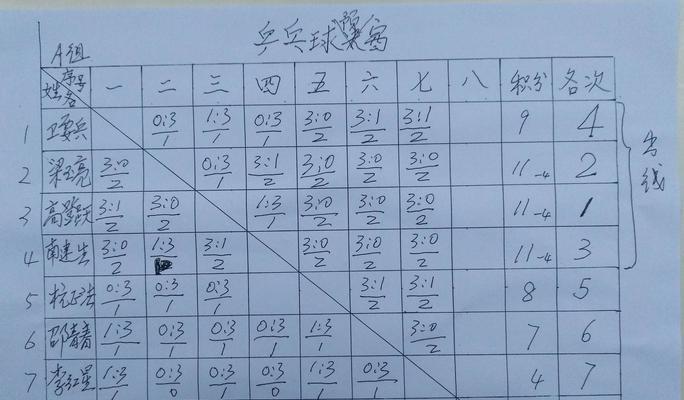 乒乓球预赛
A组
序号 姓名 一 二 三 四 五 六 七 八 积分 各次
1 卫要兵 0:3/1 1:3/1 0:3/1 3:0/2 3:1/2 3:1/2 9 4
2 梁亮 3:0/2 0:3/1 3:1/2 3:0/2 3:0/2 3:0/2 11 -4 2
3 高 3:1/2 3:0/2 1:3/1 3:0/2 3:0/2 3:0/2 11 -4 1
4 南建生 3:0/2 1:3 3:1/2 3:0/2 3:0/2 3:0/2 11 -4 3
5 杭正法 0:3/1 0:3/1 0:3/1 3:1/2 3:1/2 8 5
6 邵青春 1:3/1 0:3/1 0:3/1 0:3/1 1:3/1 3:0/2 7 6
7 李红星 1:3/1 0:3/0 0:3/1 0:3/0 1:3/1 0:3/1 4 7
出线